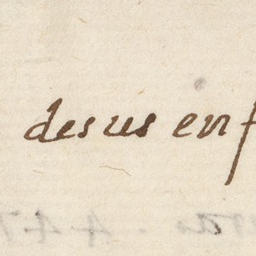 desus en